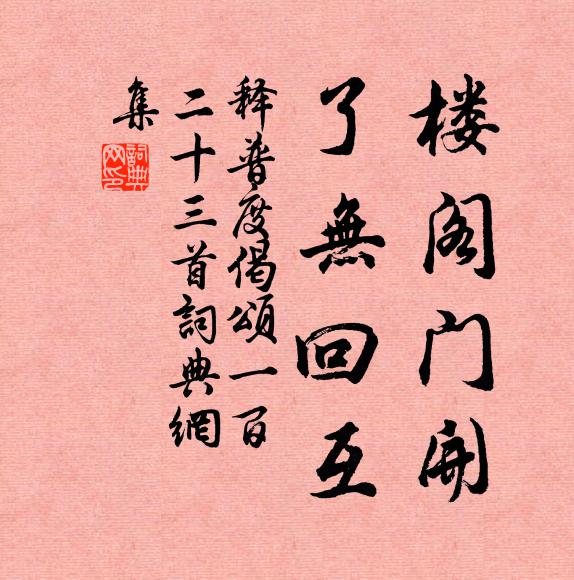 楼阁门開
了無回互
释普度偈頌一百
二十三首詞典網
集
詞典網印